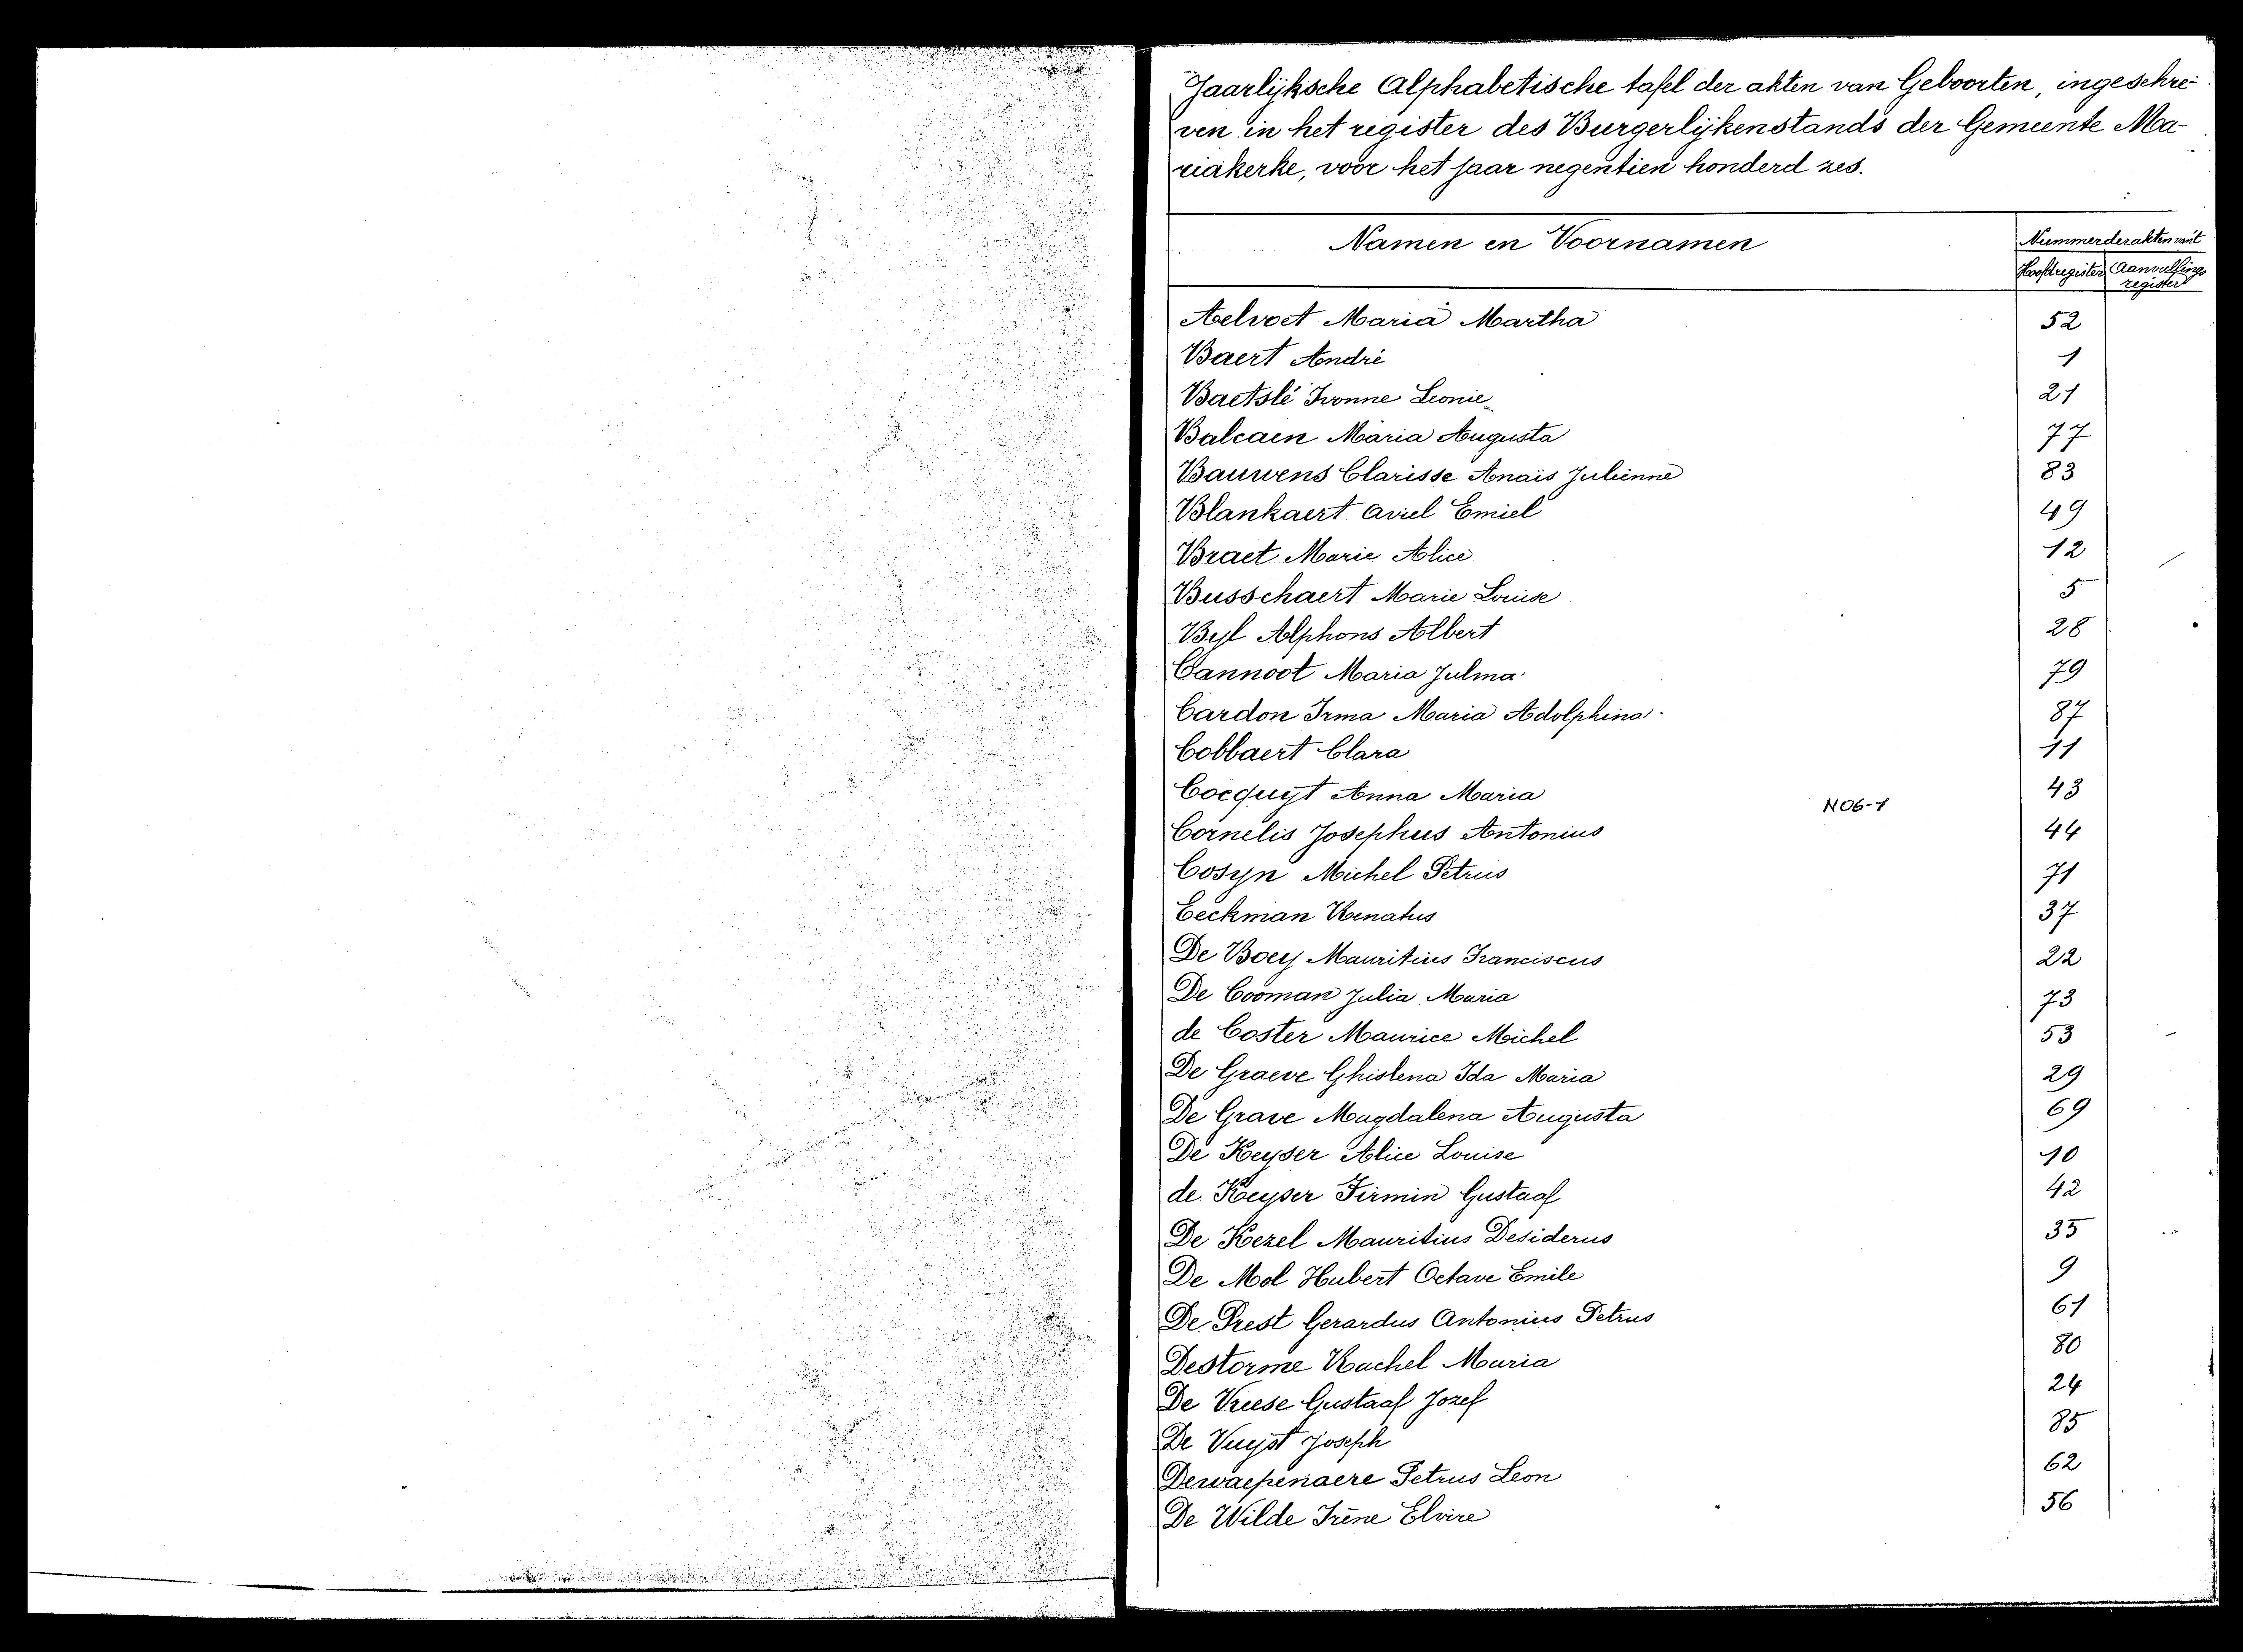 Jaarlijksche Alphabetische tafel der akten van Geboorten, ingeschre-
ven in het register des Burgerlijkenstands der Gemeente Ma-
riakerke, voor het jaar negentien honderd zes.
Namen en Voornamen
Nummer der akten van't
Hoofdregister Aanvullings
register
Aelvoet Maria Martha 52
Baert André 1
Baetslé Ivonne Leonie 21
Balcaen Maria Augusta 77
Bauwens Clarisse Anaïs Julienne 83
Blankaert Aviel Emiel 49
Braet Marie Alice 12
Busschaert Marie Louise 5
Byl Alphons Albert 28
Cannoot Maria Julma 79
Cardon Irma Maria Adolphina 87
Cobbaert Clara 11
Cocquyt Anna Maria 43
N06-1
Cornelis Josephus Antonius 44
Cosyn Michel Petrus 71
Eeckman Renatus 37
De Boey Mauritius Franciscus 22
De Cooman Julia Maria 73
de Coster Maurice Michel 53
De Graeve Ghislena Ida Maria 29
De Grave Magdalena Augusta 69
De Keyser Alice Louise 10
de Keyser Firmin Gustaaf 42
De Kezel Mauritius Desiderus 35
De Mol Hubert Octave Emile 9
De Prest Gerardus Antonius Petrus 61
Destorme Rachel Maria 80
De Vreese Gustaaf Jozef 24
De Vuyst Joseph 85
Dewaepenaere Petrus Leon 62
De Wilde Irène Elvire 56